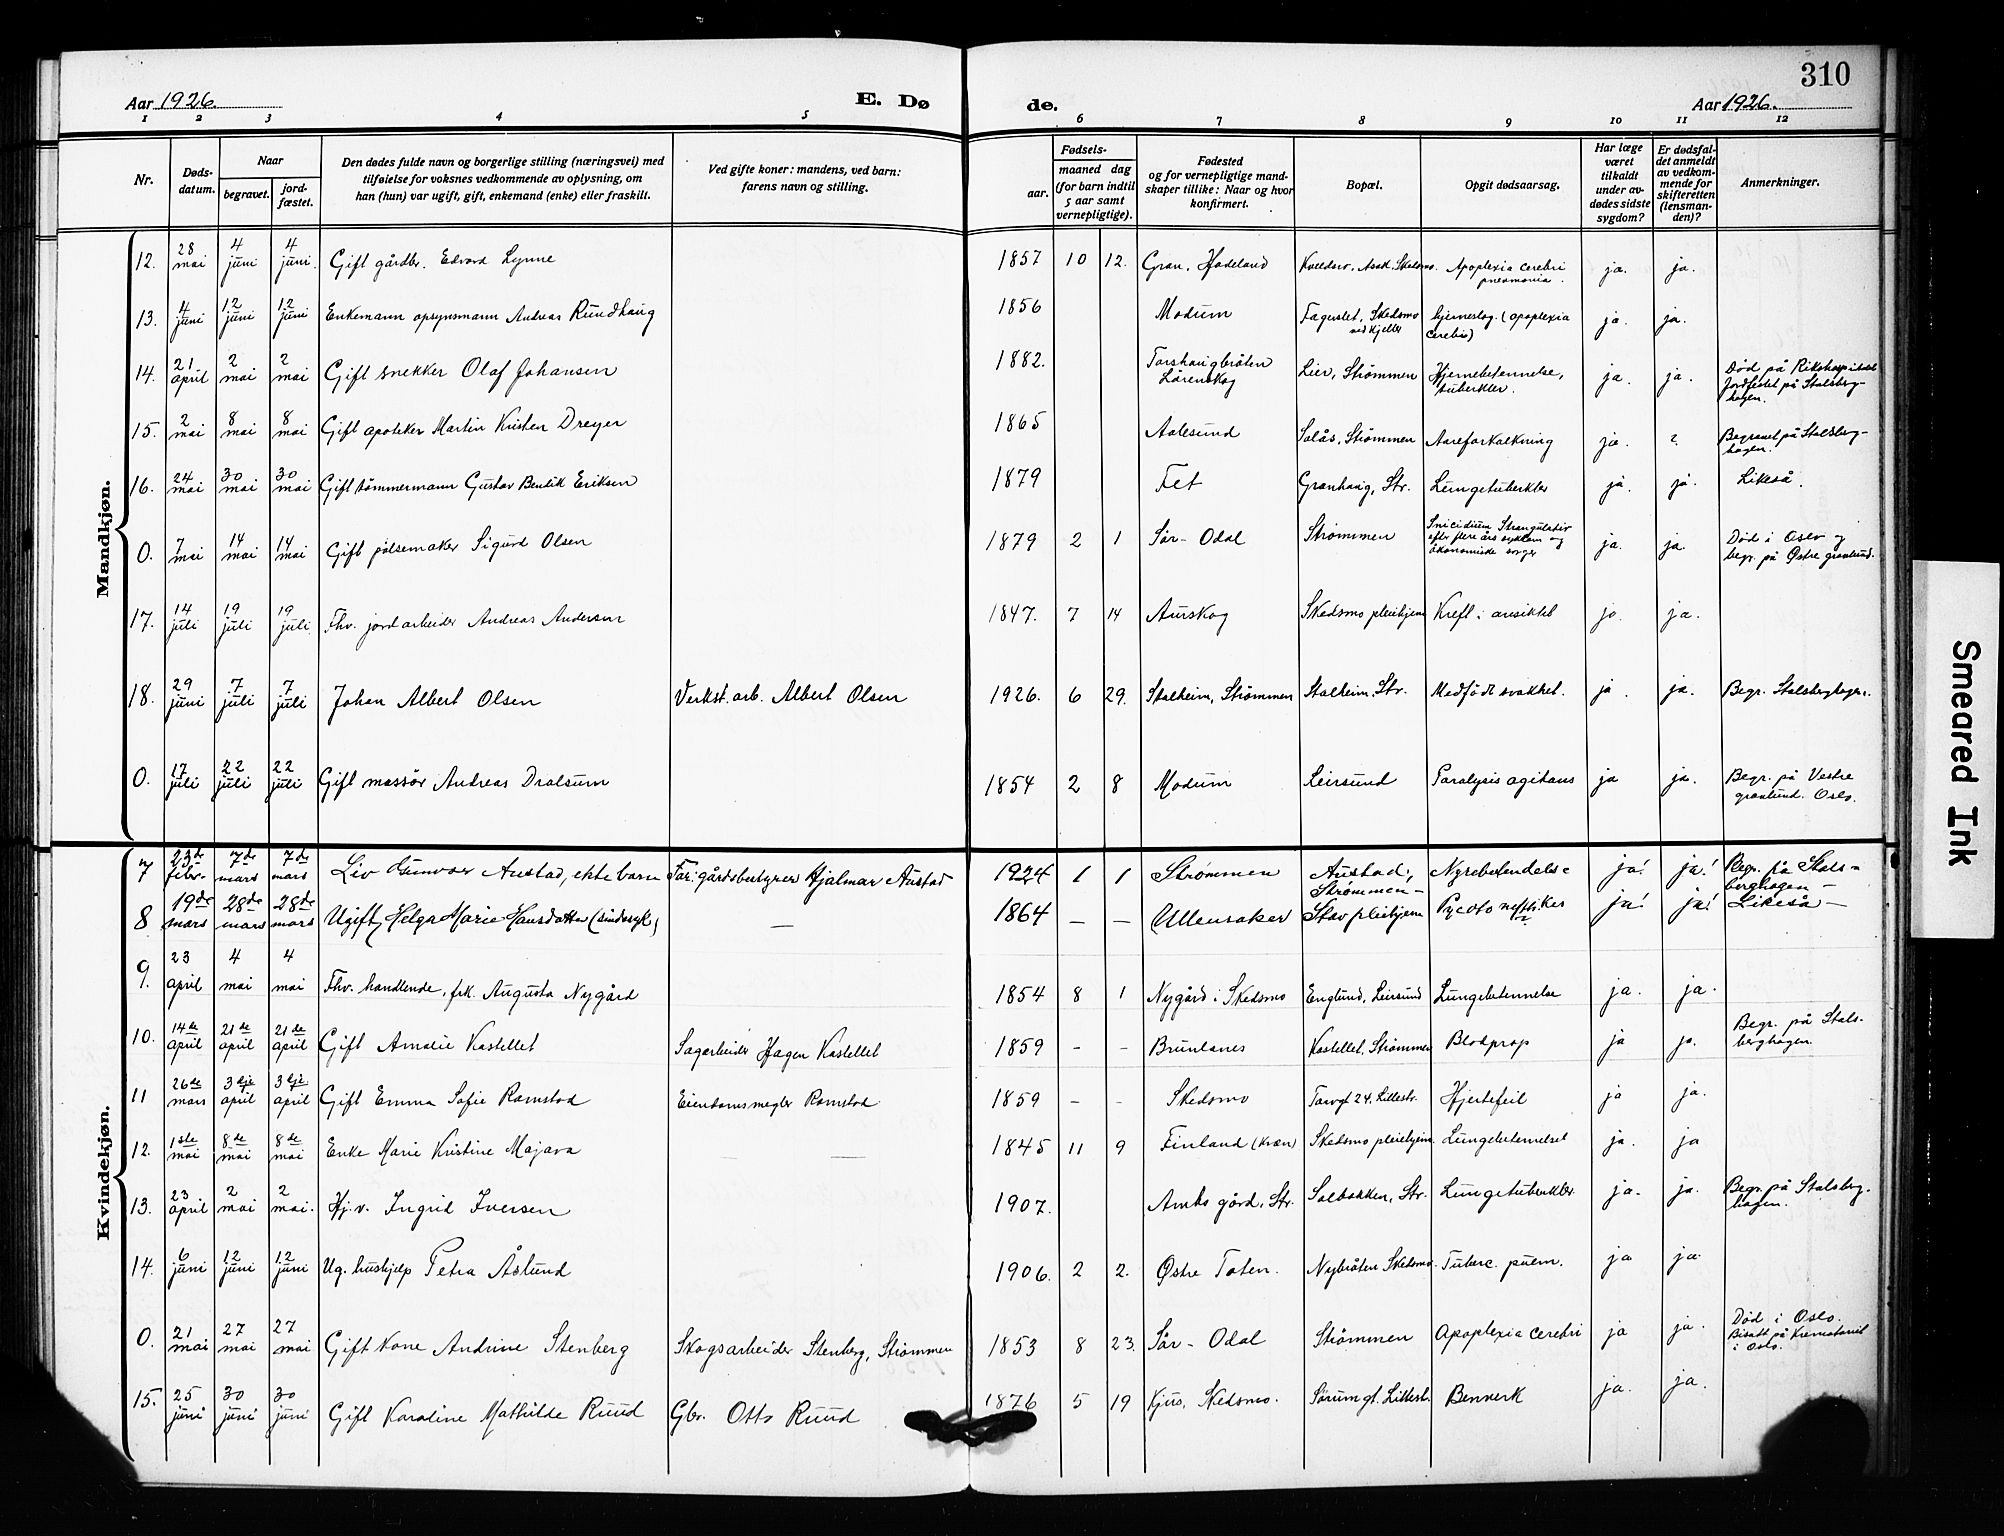 310
Aar 1926. E. Dø de. Aar 1926.
1 2 3 4 5 6 7 8 9 10 11 12
Nr.
Døds-
datum.
Naar
begravet.
jord-
fæstet.
Den dødes fulde navn og borgerlige stilling (næringsvei) med
tilføielse for voksnes vedkommende av oplysning, om
han (hun) var ugift, gift, enkemand (enke) eller fraskilt.
Ved gifte koner: mandens, ved barn:
farens navn og stilling.
Fødsels-
aar.
maaned dag
(for barn indtil
5 aar samt
vernepligtige).
Fødested
og for vernepligtige mand-
skaper tillike: Naar og hvor
konfirmert.
Bopæl.
Opgit dødsaarsag.
Har læge
været
tilkaldt
under av-
dødes sidste
sygdom?
Er dødsfal-
det anmeldt
av vedkom-
mende for
skifteretten
(lensman-
den)?
Anmerkninger.
Mandkjøn.
12. 28 mai 4 juni 4 juni. Gift gårdbr. Edvard Lynne 1857 10 12. Gran, Hadeland Skedsmo. Apoplexia cerebri pneumonia. ja. ja.
13. 4 juni 12 juni 12 juni Enkemann opsynsmann Andreas Rundhaug 1856 Modum Fagerslet, Skedsmo ved Kjeller hjerneslag. (apoplexia cerebri) ja. ja.
14. 21 april 2 mai 2 mai Gift snekker Olaf Johansen 1882. Torshaugbråten Lørenskog Lier, Strømmen Hjernebetennelse, tuberkler. ja. ja. Død på Rikshospitalet Jordfestet på Stalsberg- hagen.
15. 2 mai 8 mai 8 mai Gift apoteker Martin Kristen Dreyer 1865 Aalesund Solås, Strømmen Aareforkalkning ja. ? Begravet på Stalsberg- hagen.
16. 24 mai 30 mai 30 mai Gift tømmermann Gustav Bentik Eriksen 1879 Fet Granhaug, Str. Lungetuberkler ja. ja. Likeså.
0. 7 mai 14 mai 14 mai Gift pølsemaker Sigurd Olsen 1879 2 1 Sør-Odal Strømmen Suicidium Strangulatio efter flere års sykdom og økonomiske sorger ja. ja. Død i Oslo og begr. på Østre gravlund.
17. 14 juli 19 juli 19 juli. Fhv. jordarbeider Andreas Andersen 1847. 7 14 Aurskog Skedsmo pleiehjem Kreft i ansiktet ja. ja.
18. 29 juni 7 juli 7 juli Johan Albert Olsen Verkst. arb. Albert Olsen 1926. 6 29. Stalheim, Strømmen Stalheim, Str. Medfødt svakhet. ja. ja. Begr. Stalsberghagen.
0. 17 juli 22 juli 22 juli Gift massør Andreas Dralsum 1854 2 8 Modum Leirsund Paralysis agitans ja ja. Begr. på Vestre gravlund. Oslo.
Kvindekjøn.
7 23de febr. 7de mars 7de mars Liv Gunvor Austad, ekte barn Far: gårdsbestyrer Hjalmar Austad 1924 1 1 Strømmen Austad, Strømmen- Nyrebetendelse ja! ja! Begr. på Stals- berghagen -
8 19de mars 28de mars 28de mars Ugift Helga Marie Hansdatter (sindssyk) — 1864 — — Ullensaker pleiehjem ja! ja! Likeså —
9. 23 april 4 mai 4 mai Fhv. handlende, frk. Augusta Nygård 1854 8 1 Nygård i Skedsmo Englund, Leirsund Lungebetennelse ja. ja.
10. 14de april 21de april 21de april Gift Amalie Kastellet Sagarbeider Hagen Kastellet 1859 - - Brunlanes Kastellet, Strømmen Blodprop ja ja. Begr. på Stals- berghagen.
11 26de mars 3dje april 3dje april Gift Emma Sofie Ramstad Eiendomsmegler Ramstad 1859 - - Skedsmo Torvgt 24. Lillestr. Hjertefeil ja ja.
12. 1ste mai 8de mai 8de mai Enke Marie Kristine Majava — — 1845 11 9 Finland (Kvæn) Skedsmo pleiehjem. Lungebetennelse ja. ja
13. 23 april 2 mai 2 mai. Hj. v. Ingrid Iversen 1907. gård, Str. Solbakken, Str. Lungetuberkler. ja. ja. Begr. på Stalsberg- hagen.
14. 6 juni 12 juni 12 juni Ug. hushjelp Petra Åslund 1906. 2 2. Østre Toten. Nybråten Skedsmo. Tuberc. pulm. ja ja.
0. 21 mai 27 mai 27 mai Gift Kone Andrine Stenberg Skogsarbeider Stenberg, Strømmen 1853 8 23. Sør-Odal Strømmen Apoplexia cerebri ja ja. Død i Oslo. Bisatt på Krematoriet i Oslo.
15. 25 juni 30 juni 30 juni Gift Karoline Mathilde Ruud Gbr. Otto Ruud 1876 5 19 Kjus, Skedsmo. Sørumgt. Lillestr. Benverk ja. ja.
Smeared Ink